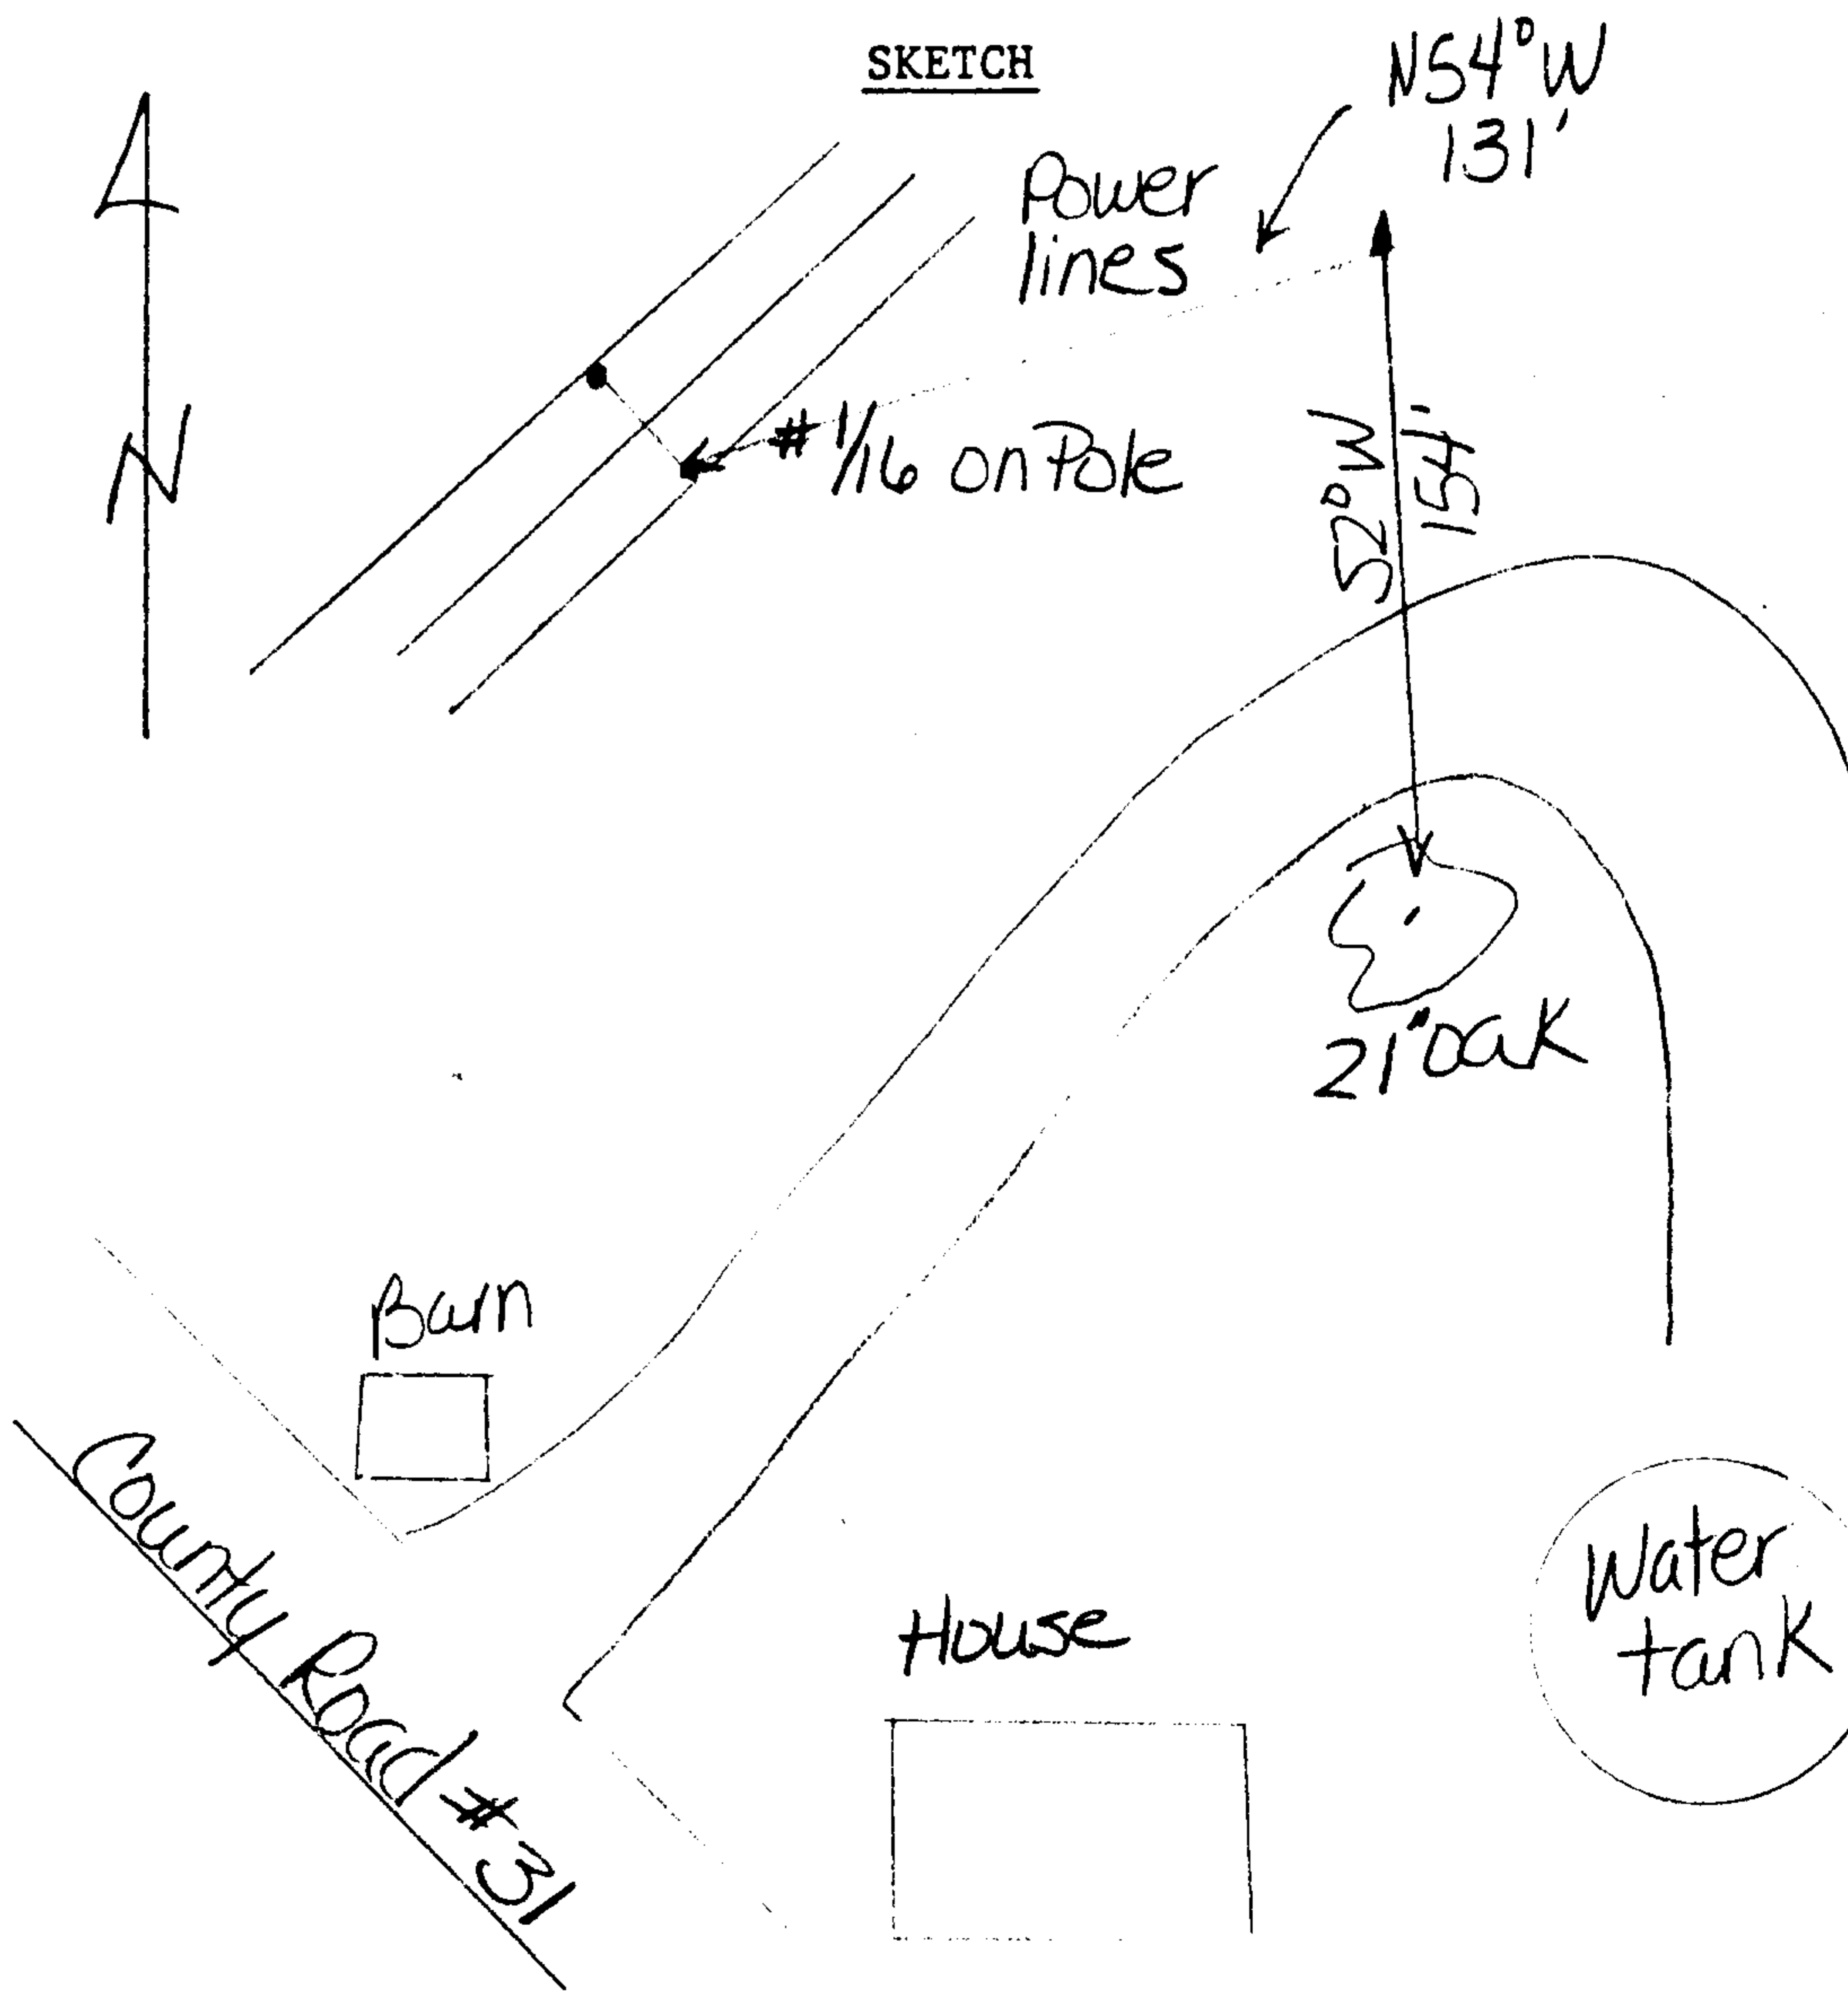 SKETCH
N54°W
131'
Power
lines
#1/16 on Pole
S2°W
154'
N
21" Oak
Barn
County Road #31
House
Water
tank